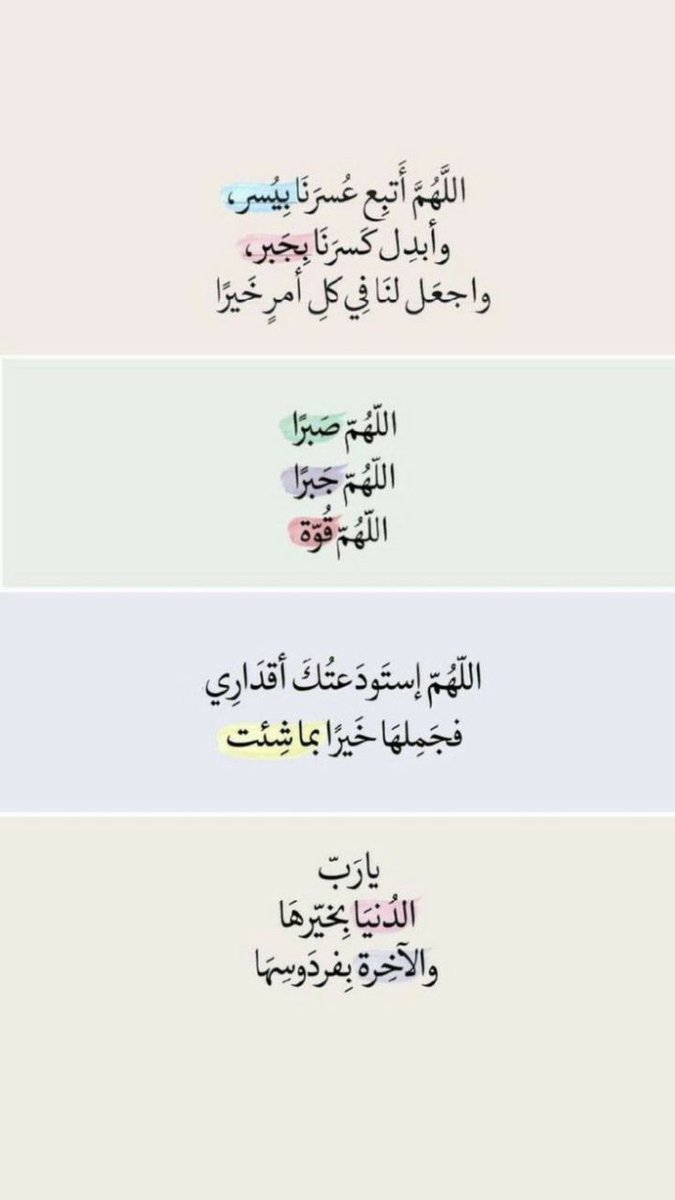 اللَّهُمَّ أَتبِع عُسرَنَا بِيُسر،
وأبدِل كَسرَنَا بِجَبر،
واجعَل لنَا فِي كلِ أمرٍ خَيرًا
اللّهُمّ صَبرًا
اللّهُمّ جَبرًا
اللّهُمّ قُوّة
اللّهُمّ إستَودَعتُكَ أقدَارِي
فجَمِلهَا خَيرًا بما شِئت
يارَبّ
الدُنيَا بِخيّرهَا
والآخِرة بِفردَوسِهَا